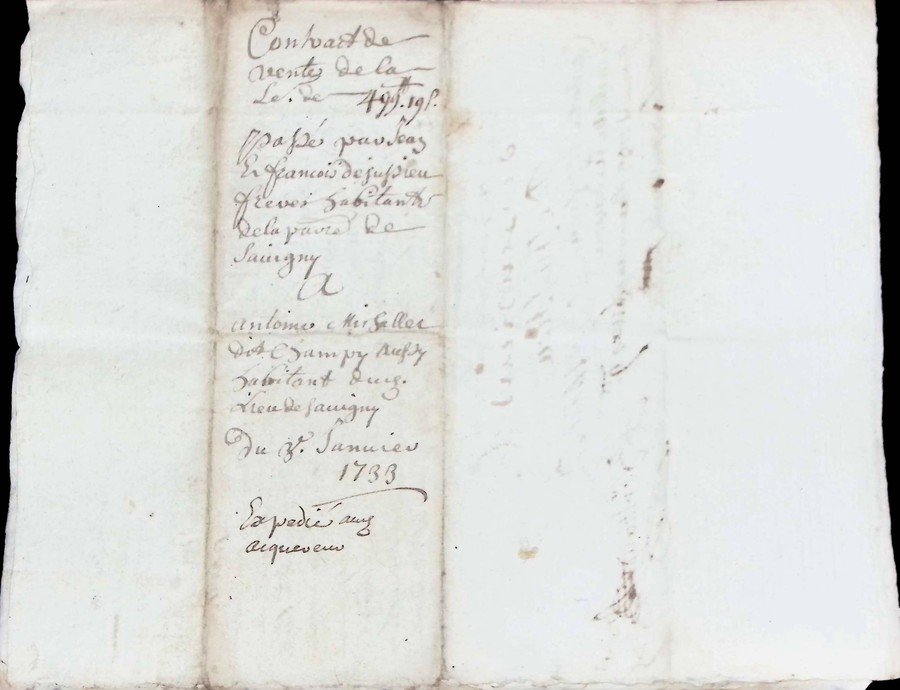 Contract de
vente de la
Le. de 499tt. 19s.
passé par Jean
Et francois dejussieu
freres habitants
dela parre de
Savigny
A
antoine Michallet
dit Champy aussy
habitant dud.
Lieu de Savigny
Du 3e. Janvier
1733
Expedié aud
acquereur